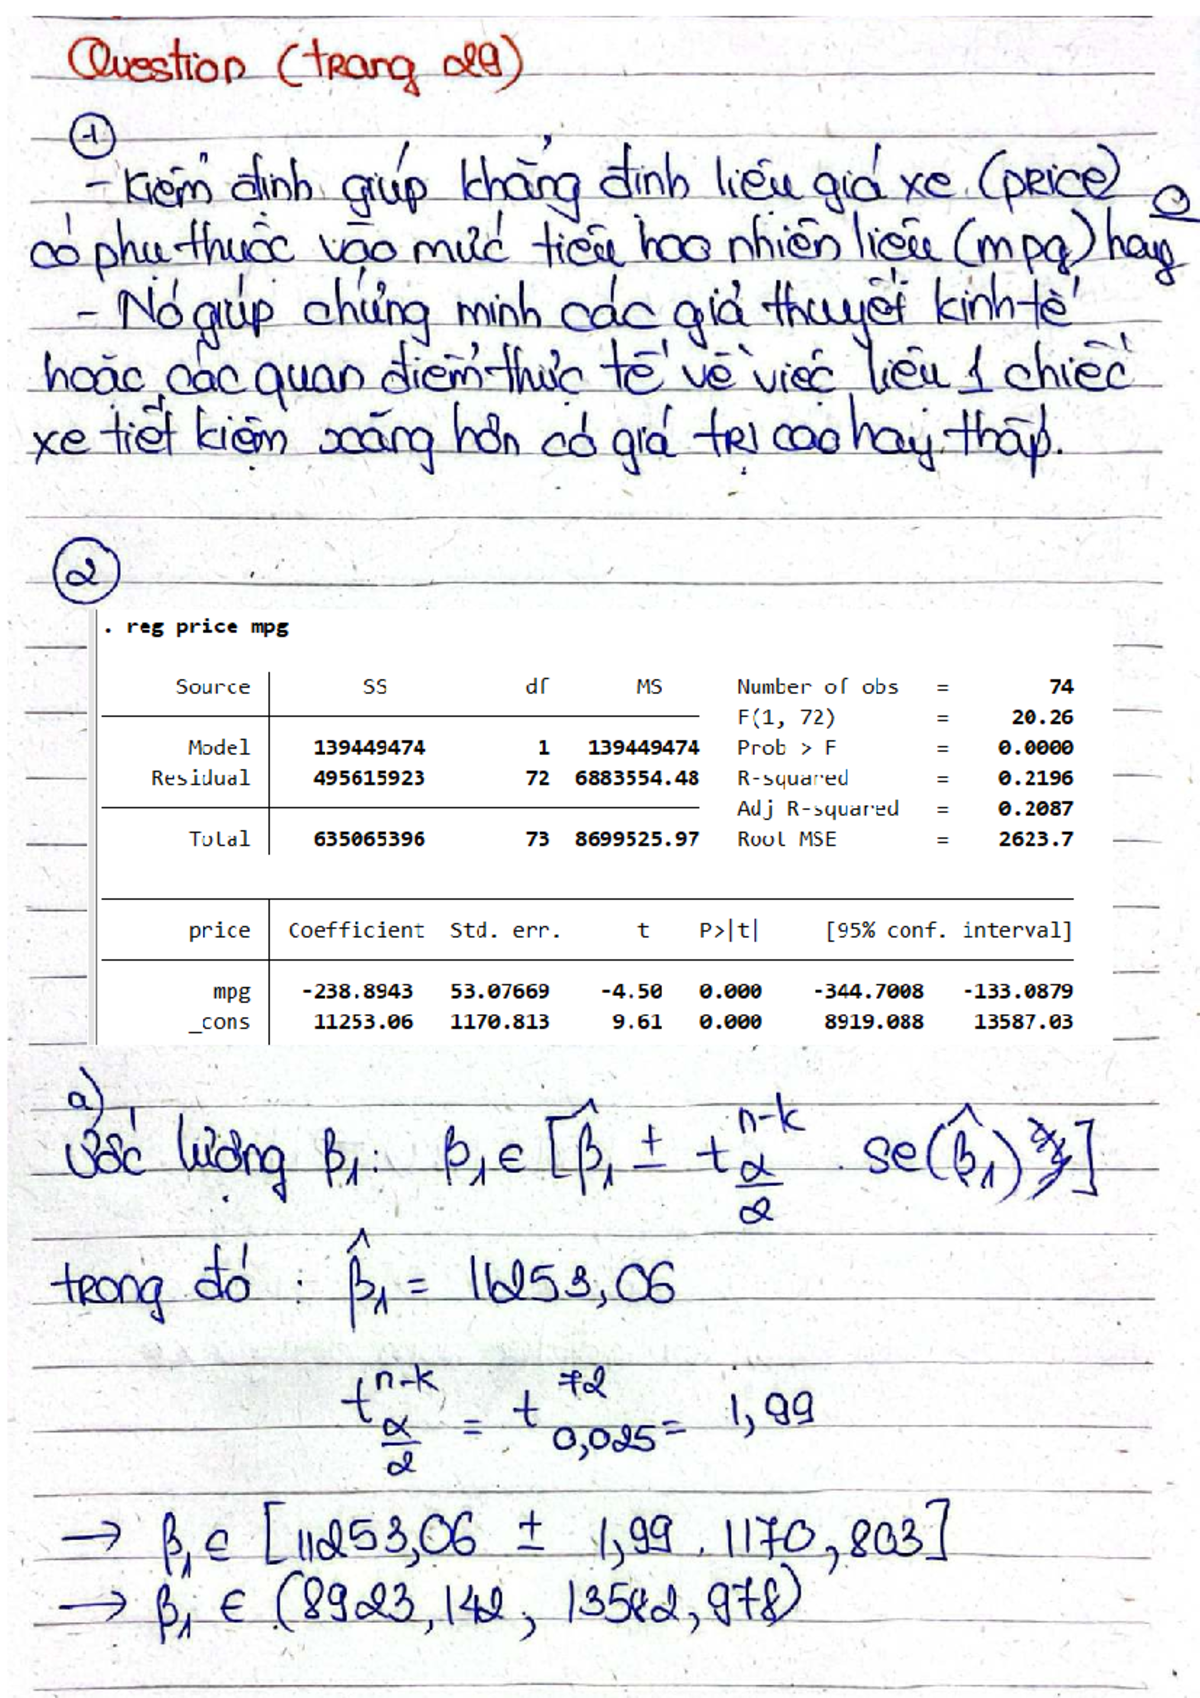 Question (trang 29)
①
- Kiểm định giúp khẳng định liệu giá xe (price)
có phụ thuộc vào mức tiêu hao nhiên liệu (mpg) hay 0
- Nó giúp chứng minh các giả thuyết kinh tế
hoặc các quan điểm thực tế về việc liệu 1 chiếc
xe tiết kiệm xăng hơn có giá trị cao hay thấp.
②
. reg price mpg
Source SS df MS Number of obs = 74
F(1, 72) = 20.26
Model 139449474 1 139449474 Prob > F = 0.0000
Residual 495615923 72 6883554.48 R-squared = 0.2196
Adj R-squared = 0.2087
Total 635065396 73 8699525.97 Root MSE = 2623.7
price Coefficient Std. err. t P>|t| [95% conf. interval]
mpg -238.8943 53.07669 -4.50 0.000 -344.7008 -133.0879
_cons 11253.06 1170.813 9.61 0.000 8919.088 13587.03
a)
Ước lượng β₁: β₁ ∈ [β̂₁ ± t^{n-k}_{α/2} . se(β̂₁)]
trong đó : β̂₁ = 11253,06
t^{n-k}_{α/2} = t^{72}_{0,025} = 1,99
→ β₁ ∈ [11253,06 ± 1,99 . 1170,803]
→ β₁ ∈ (8923,142, 13582,978)